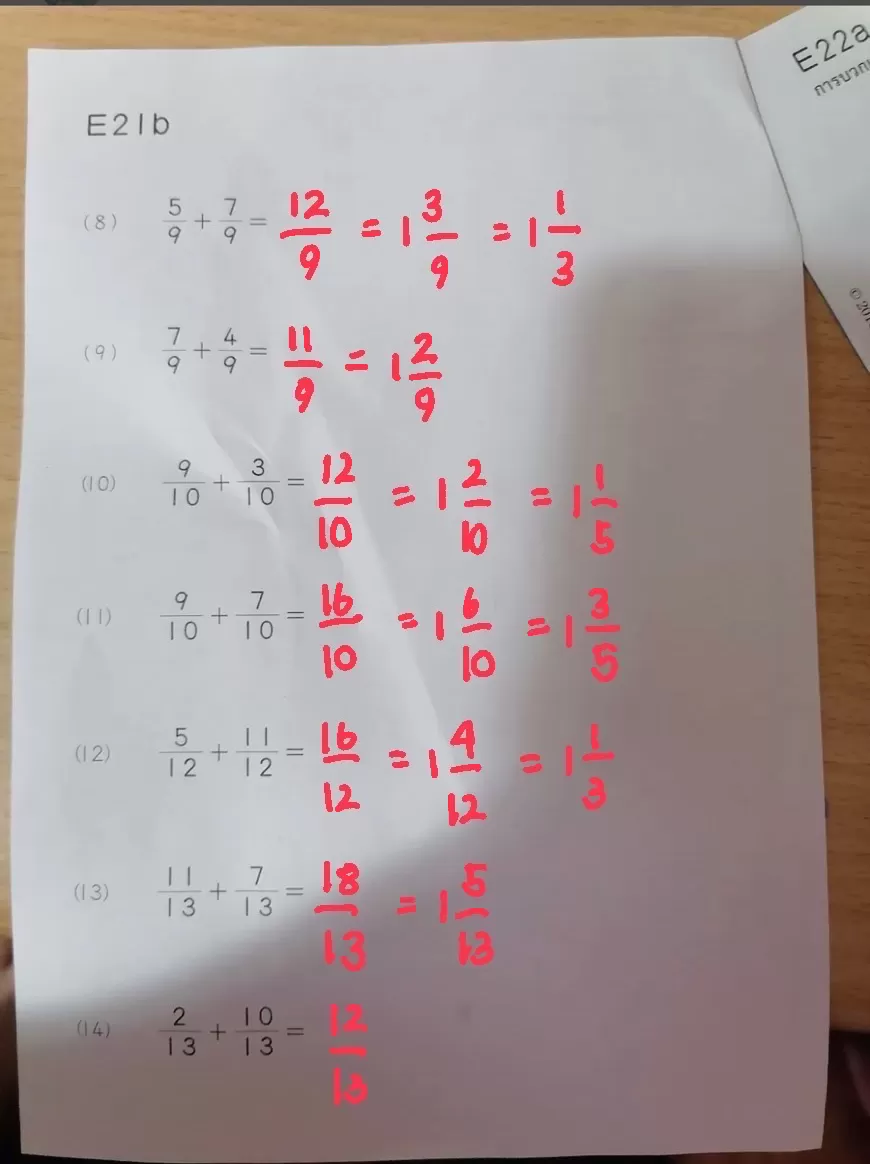 E22a
การบวก
© 201
E21b
(8) 5/9 + 7/9 = 12/9 = 1 3/9 = 1 1/3
(9) 7/9 + 4/9 = 11/9 = 1 2/9
(10) 9/10 + 3/10 = 12/10 = 1 2/10 = 1 1/5
(11) 9/10 + 7/10 = 16/10 = 1 6/10 = 1 3/5
(12) 5/12 + 11/12 = 16/12 = 1 4/12 = 1 1/3
(13) 11/13 + 7/13 = 18/13 = 1 5/13
(14) 2/13 + 10/13 = 12/13